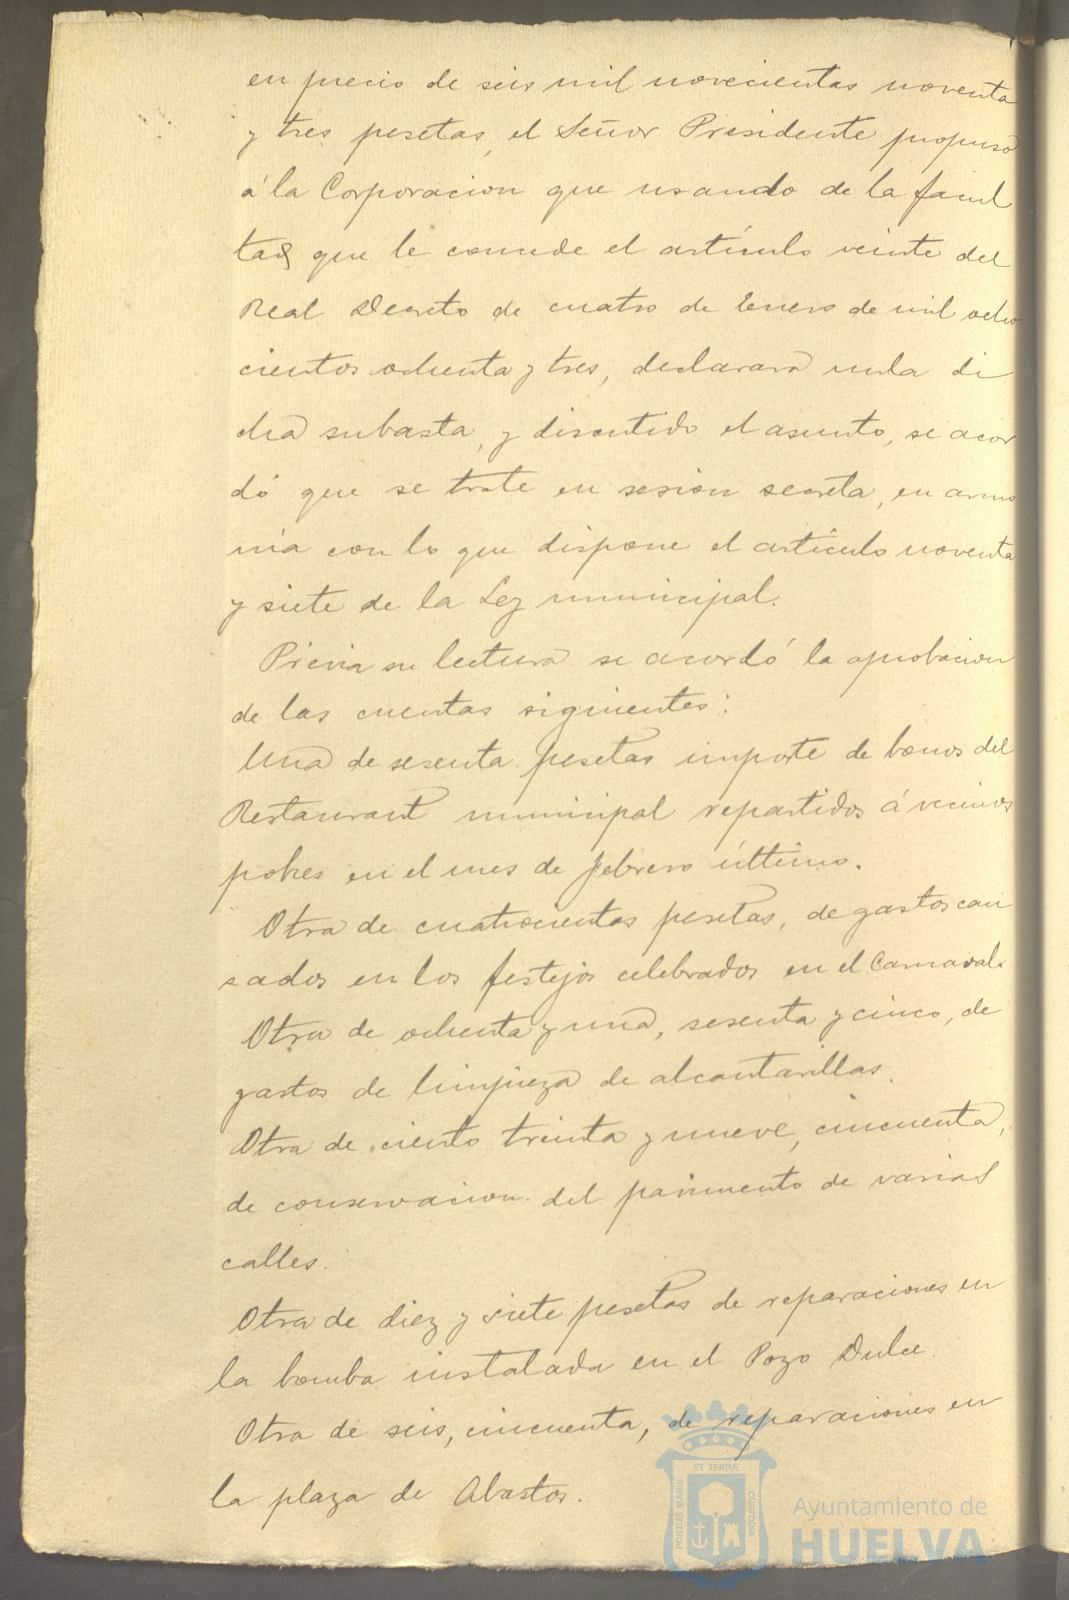 en precio de seis mil novecientas noventa
y tres pesetas, el Señor Presidente propuso
á la Corporacion que usando de la facul
tad que le concede el artículo veinte del
Real Decreto de cuatro de Enero de mil ocho
cientos ochenta y tres, declarara nula di
cha subasta, y discutido el asunto, se acor
dó que se trate en sesion secreta, en armo
nia con lo que dispone el artículo noventa
y siete de la Ley municipal.
Previa su lectura se acordó la aprobacion
de las cuentas siguientes:
Una de sesenta pesetas importe de bonos del
Restaurant municipal repartidos á vecinos
pobres en el mes de febrero último.
Otra de cuatrocientas pesetas, de gastos cau
sados en los festejos celebrados en el Carnaval.
Otra de ochenta y una, sesenta y cinco, de
gastos de limpieza de alcantarillas.
Otra de ciento treinta y nueve, cincuenta,
de conservacion del pavimento de varias
calles.
Otra de diez y siete pesetas de reparaciones en
la bomba instalada en el Pozo Dulce.
Otra de seis, cincuenta, de reparaciones en
la plaza de Abastos.
PORTUS MARIS ET TERRÆ CUSTODIA
Ayuntamiento de
HUELVA